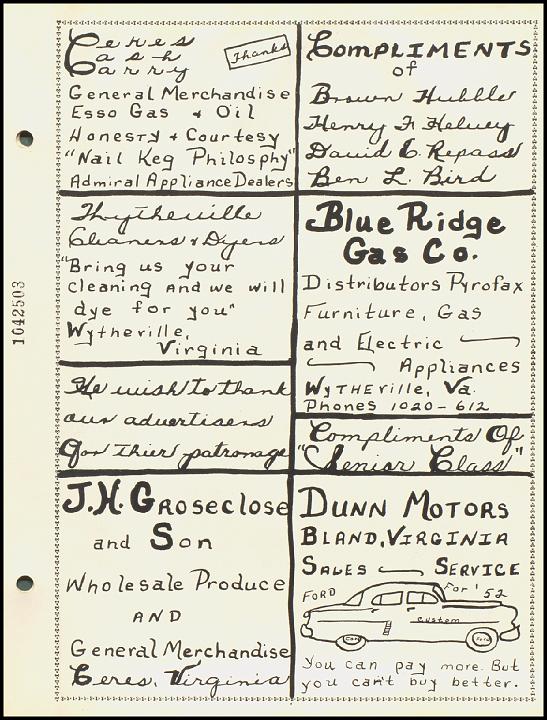 Ceres
Cash
Carry
Thanks
General Merchandise
Esso Gas + Oil
Honesty + Courtesy
"Nail Keg Philosphy"
Admiral Appliance Dealers
Compliments
of
Brown Hubble
Henry F. Kelley
David E. Repass
Ben L. Bird
Wytheville
Cleaners & Dyers
"Bring us your
cleaning and we will
dye for you"
Wytheville,
Virginia
Blue Ridge
Gas Co.
Distributors Pyrofax
Furniture, Gas
and Electric
Appliances
Wytheville, Va.
Phones 1020-612
We wish to thank
our advertisers
for thier patronage
Compliments Of
"Senior Class"
J.H. Groseclose
and Son
Wholesale Produce
AND
General Merchandise
Ceres, Virginia
Dunn Motors
Bland, Virginia
Sales Service
FORD For '52
Custom
Ford Ford
You can pay more. But
you can't buy better.
1042503